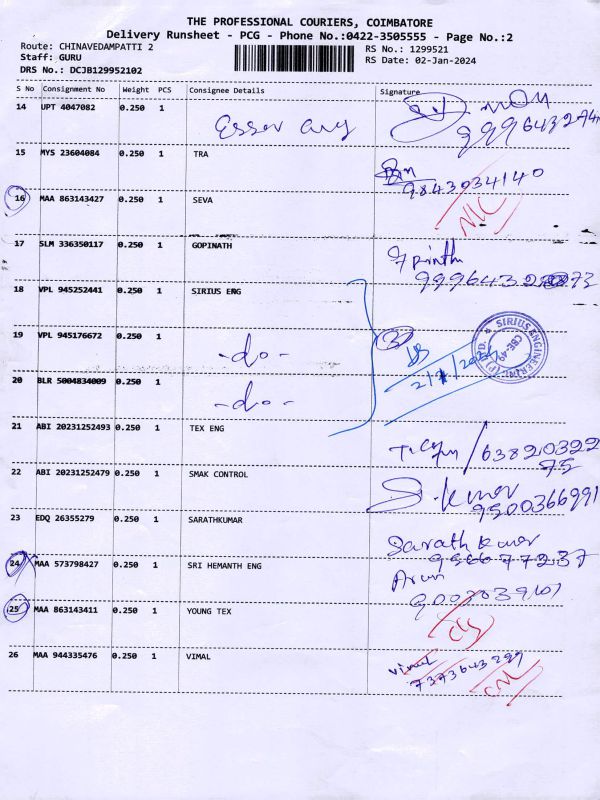 THE PROFESSIONAL COURIERS, COIMBATORE
Delivery Runsheet - PCG - Phone No.:0422-3505555 - Page No.:2
Route: CHINAVEDAMPATTI 2 RS No.: 1299521
Staff: GURU RS Date: 02-Jan-2024
DRS No.: DCJB129952102
S No Consignment No Weight PCS Consignee Details Signature
14 UPT 4047082 0.250 1
15 MYS 23604084 0.250 1 TRA
9843034140
16 MAA 863143427 0.250 1 SEVA
NIC
17 SLM 336350117 0.250 1 GOPINATH
18 VPL 945252441 0.250 1 SIRIUS ENG
19 VPL 945176672 0.250 1
-do-
20 BLR 5004834009 0.250 1
-do-
3
2/1/2024
SIRIUS ENGINEERING (P) LTD.
CBE-49
21 ABI 20231252493 0.250 1 TEX ENG
6382032275
22 ABI 20231252479 0.250 1 SMAK CONTROL
S. Kumar
9500366991
23 EDQ 26355279 0.250 1 SARATHKUMAR
Sarath Kumar
956677237
24 MAA 573798427 0.250 1 SRI HEMANTH ENG
Arun
25 MAA 863143411 0.250 1 YOUNG TEX
26 MAA 944335476 0.250 1 VIMAL
Vimal
7373643299